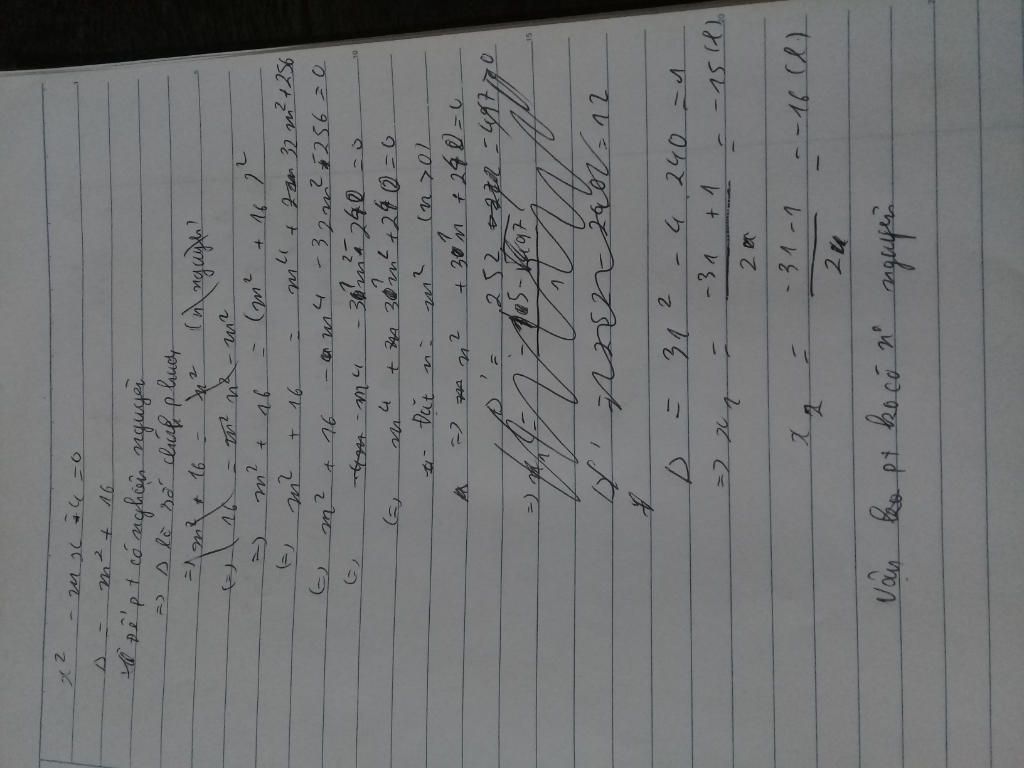 x² - mx - 4 = 0
Δ = m² + 16
Để pt có nghiệm nguyên
=> Δ là số chính phương
=> m² + 16 = n² (n nguyên)
(=) 16 = n² - m²
=> m² + 16 = (m² + 16)²
(=) m² + 16 = m⁴ + 32m² + 256
(=) m² + 16 - m⁴ - 32m² - 256 = 0
(=) -m⁴ - 31m² - 240 = 0
(=) m⁴ + 31m² + 240 = 0
Đặt n = m² (n > 0)
=> n² + 31n + 240 = 0
Δ = 31² - 4 240 = 1
=> x1 = -31 + 1 / 2 = -15 (l)
x2 = -31 - 1 / 2 = -16 (l)
Vậy pt ko có nº nguyên